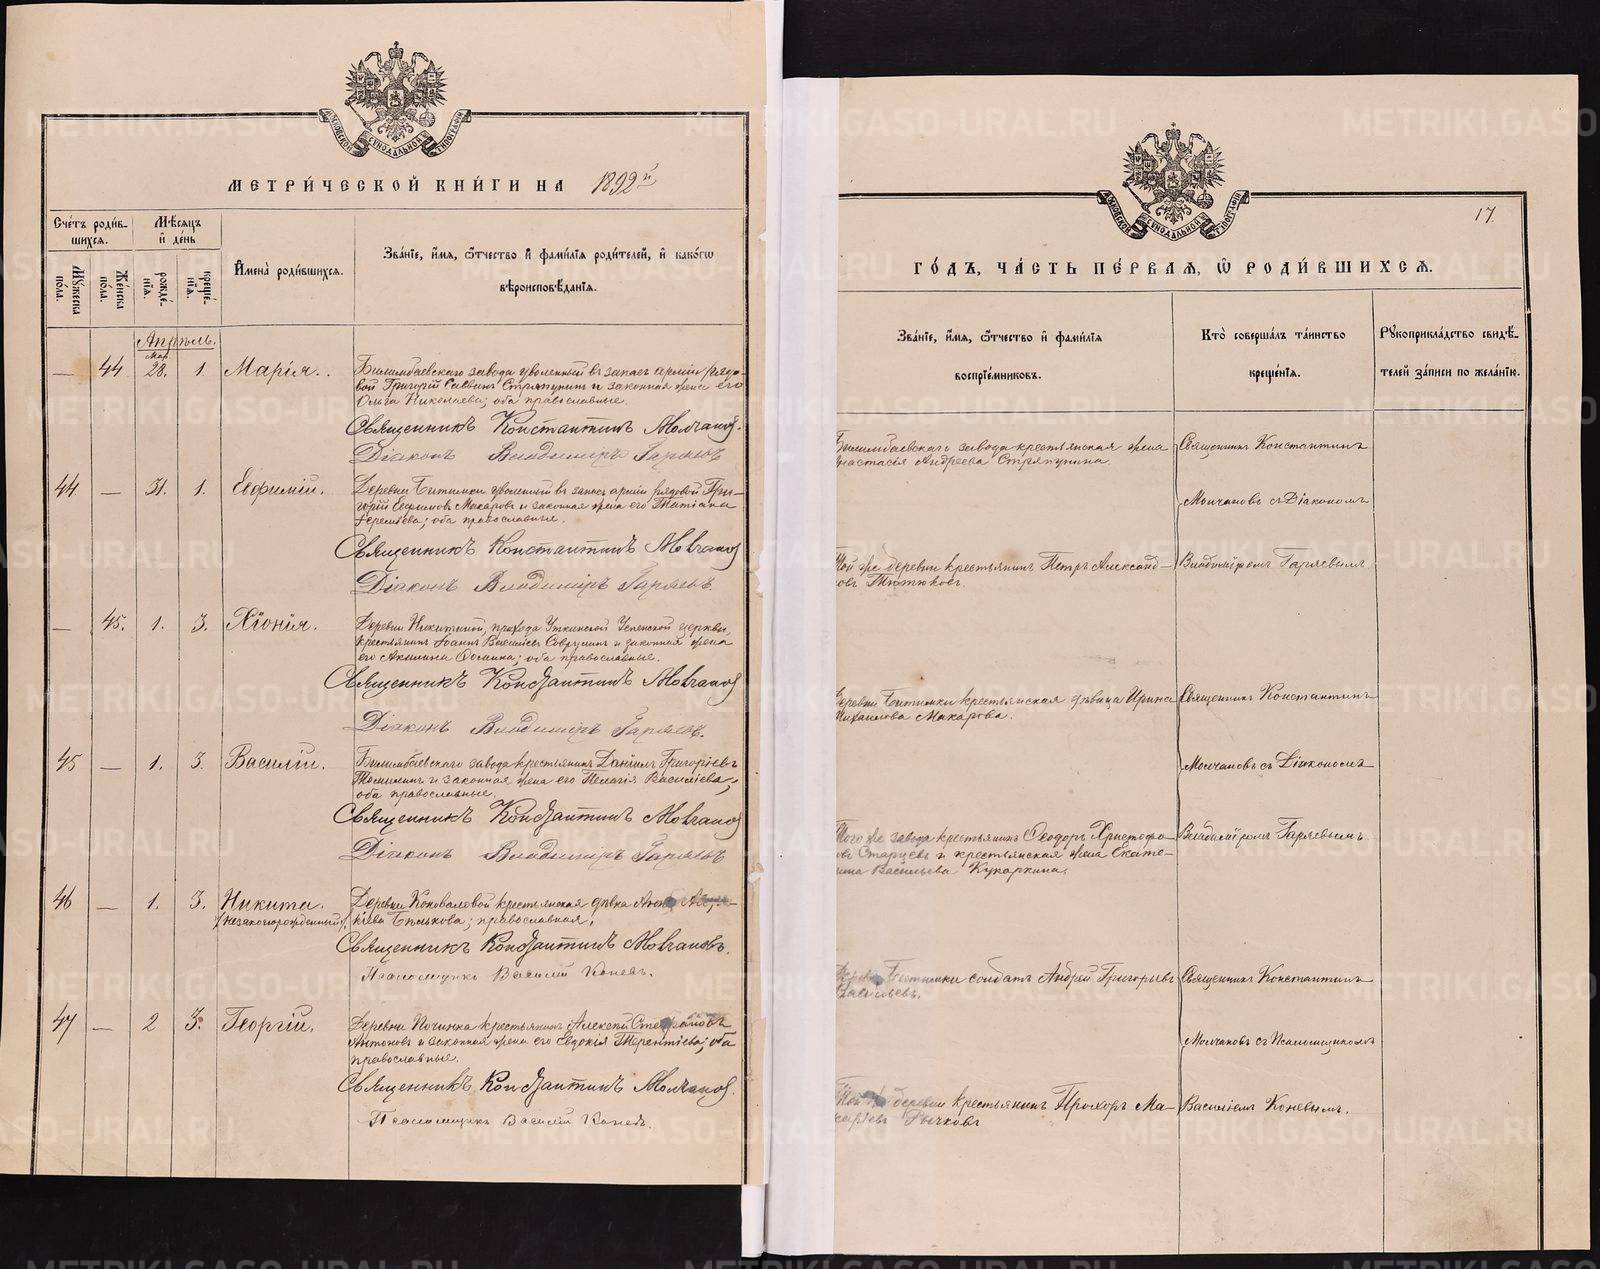 ДУХОВСКОЙ СИНОДАЛЬНОЙ ТИПОГРАФІИ
МЕТРИ́ЧЕСКОЙ КНИ́ГИ НА 1892й
Сче́тъ роди́в-
шихсѧ.
Мѣ́сѧцъ
и҆ де́нь
И҆мена̀ роди́вшихсѧ.
Зва́нїе, и҆́мѧ, ѻ҆́тчество и҆ фами́лїѧ роди́телей, и҆ како́гѡ
вѣроисповѣ́данїѧ.
Мꙋ́жеска
по́ла.
Же́нска
пола.
рожде́-
нїѧ.
креще́-
нїѧ.
Апрѣль.
Мар.
— 44 28. 1. Марія.
Билимбаевскаго завода уволенный въ запасъ арміи рядо-
вой Григорій Саввинъ Стряпунинъ и законная жена его
Ольга Николаева; оба православные.
Священникъ Константинъ Молчановъ.
Діаконъ Владиміръ Гаряевъ
44 — 31. 1. Евфимій.
Деревни Битимки уволенный въ запасъ арміи рядовой Гри-
горій Евфимовъ Макаровъ и законная жена его Татіана
Еремѣева; оба православные.
Священникъ Константинъ Молчановъ
Діаконъ Владиміръ Гаряевъ.
— 45. 1. 3. Хіонія.
Деревни Никитиной, прихода Уткинской Успенской церкви,
крестьянинъ Іоаннъ Васильевъ и законная жена
его Акилина Ѳомина; оба православные.
Священникъ Константинъ Молчановъ
Діаконъ Владиміръ Гаряевъ.
45 — 1. 3. Василій.
Билимбаевскаго завода крестьянинъ Даніилъ Григоріевъ
Томилинъ и законная жена его Пелагія Василіева;
оба православные.
Священникъ Константинъ Молчановъ
Діаконъ Владиміръ Гаряевъ
46 — 1. 3. Никита.
(незаконнорожденный)
Деревни Коноваловой крестьянская дѣвка Анна
Бѣлькова; православная.
Священникъ Константинъ Молчановъ.
Псаломщикъ Василій Коневъ.
47 — 2 3. Георгій.
Деревни Починка крестьянинъ Алексѣй Стефановъ
Антоновъ и законная жена его Евдокія Терентіева; оба
православные.
Священникъ Константинъ Молчановъ
Псаломщикъ Василій Коневъ.
ДУХОВСКОЙ СИНОДАЛЬНОЙ ТИПОГРАФІИ
17.
ГО́ДЪ, ЧА́СТЬ ПЕ́РВАѦ, Ѡ҆ РОДИ́ВШИХСѦ.
Зва́нїе, и҆́мѧ, ѻ҆́тчество и҆ фами́лїѧ
воспрїе́мниковъ.
Кто̀ соверша́лъ та́инство
креще́нїѧ.
Рꙋкоприкла́дство свидѣ́-
телей за́писи по жела́нїю.
Билимбаевскаго завода крестьянская жена
Анастасія Андреева Стряпунина.
Священникъ Константинъ
Молчановъ съ Діакономъ
Той же деревни крестьянинъ Петръ Александ-
ровъ Тютюковъ.
Владиміромъ Гаряевымъ
Деревни Битимки крестьянская дѣвица Ирина
Михаилова Макарова.
Священникъ Константинъ
Молчановъ съ Діакономъ
Того же завода крестьянинъ Ѳеодоръ Христофо-
ровъ Старцевъ и крестьянская жена Екате-
рина Васильева Кукаркина.
Владиміромъ Гаряевымъ.
Деревни Битимки солдатъ Андрей Григорьевъ
Васильевъ.
Священникъ Константинъ
Молчановъ съ Псаломщикомъ
Той же деревни крестьянинъ Прохоръ Ма-
каріевъ Рычковъ
Василіемъ Коневымъ.
METRIKI.GASO-URAL.RU